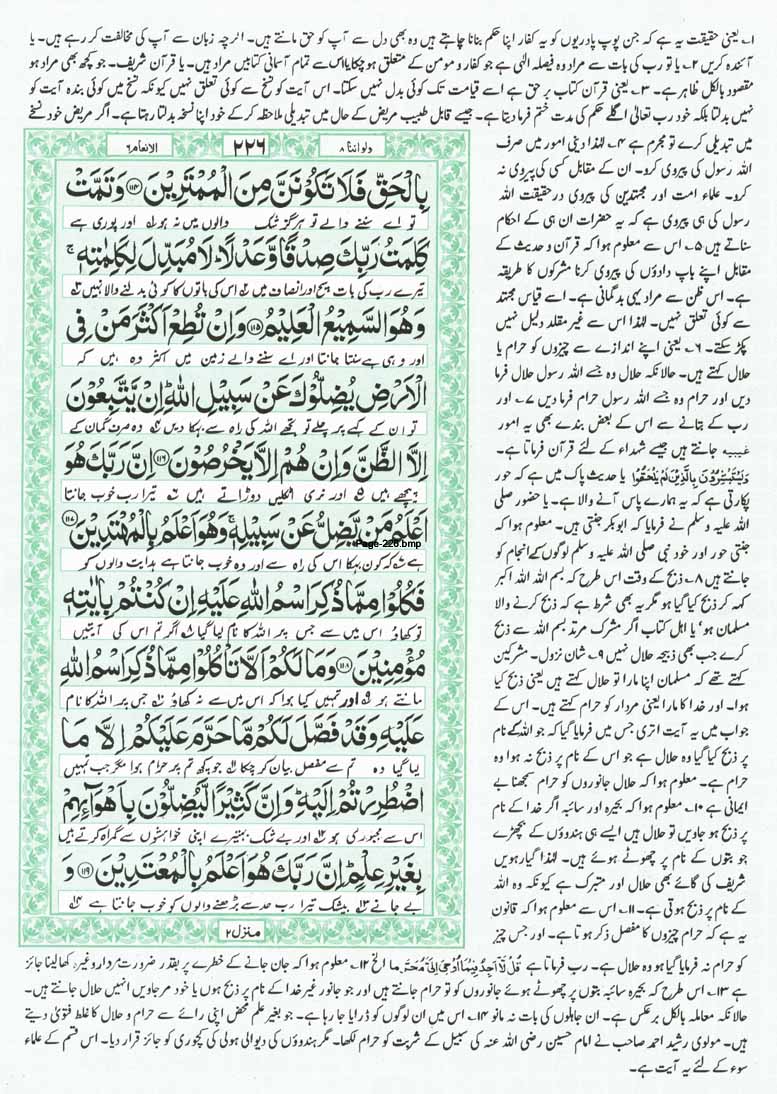 ۱۔ یعنی حقیقت یہ ہے کہ جن پوپ پادریوں کو یہ کفار اپنا حکم بنانا چاہتے ہیں وہ بھی دل سے آپ کو حق مانتے ہیں۔ اگرچہ زبان سے آپ کی مخالفت کر رہے ہیں۔ یا
آئندہ کریں ۲۔ یا تو رب کی بات سے مراد وہ فیصلہ الٰہی ہے جو کفار و مومن کے متعلق ہو چکا یا اس سے تمام آسمانی کتابیں مراد ہیں۔ یا قرآن شریف۔ جو کچھ بھی مراد ہو
مقصود بالکل ظاہر ہے۔ ۳۔ یعنی قرآن کتاب برحق ہے اسے قیامت تک کوئی بدل نہیں سکتا۔ اس آیت کو نسخ سے کوئی تعلق نہیں کیونکہ نسخ میں کوئی بندہ آیت کو
نہیں بدلتا بلکہ خود رب تعالیٰ اگلے حکم کی مدت ختم فرما دیتا ہے۔ جیسے قابل طبیب مریض کے حال میں تبدیلی ملاحظہ کر کے خود اپنا نسخہ بدلتا رہتا ہے۔ اگر مریض خود نسخے
میں تبدیلی کرے تو مجرم ہے ۴۔ لہٰذا دینی امور میں صرف
اللہ رسول کی پیروی کرو۔ ان کے مقابل کسی کی پیروی نہ
کرو۔ علماء امت اور مجتہدین کی پیروی درحقیقت اللہ
رسول کی ہی پیروی ہے کہ یہ حضرات ان ہی کے احکام
سناتے ہیں ۵۔ اس سے معلوم ہوا کہ قرآن و حدیث کے
مقابل اپنے باپ دادؤں کی پیروی کرنا مشرکوں کا طریقہ
ہے۔ اس ظن سے مراد یہی بدگمانی ہے۔ اسے قیاس مجتہد
سے کوئی تعلق نہیں۔ لہٰذا اس سے غیر مقلد دلیل نہیں
پکڑ سکتے۔ ۶۔ یعنی اپنے اندازے سے چیزوں کو حرام یا
حلال کہتے ہیں۔ حالانکہ حلال وہ جسے اللہ رسول حلال فرما
دیں اور حرام وہ جسے اللہ رسول حرام فرما دیں ۷۔ اور
رب کے بتانے سے اس کے بعض بندے بھی یہ امور
غیبیہ جانتے ہیں جیسے شہداء کے لئے قرآن فرماتا ہے۔
وَيَسْتَبْشِرُونَ بِالَّذِينَ لَمْ يَلْحَقُوا یا حدیث پاک میں ہے کہ حور
پکارتی ہے کہ یہ ہمارے پاس آنے والا ہے۔ یا حضور صلی
اللہ علیہ وسلم نے فرمایا کہ ابوبکر جنتی ہیں۔ معلوم ہوا کہ
جنتی حور اور خود نبی صلی اللہ علیہ وسلم لوگوں کے انجام کو
جانتے ہیں ۸۔ ذبح کے وقت اس طرح کہ بسم اللہ اللہ اکبر
کہہ کر ذبح کیا گیا ہو مگر یہ بھی شرط ہے کہ ذبح کرنے والا
مسلمان ہو' یا اہل کتاب اگر مشرک مرتد بسم اللہ سے ذبح
کرے جب بھی ذبیحہ حلال نہیں ۹۔ شان نزول۔ مشرکین
کہتے تھے کہ مسلمان اپنا مارا تو حلال کہتے ہیں یعنی ذبح کیا
ہوا۔ اور خدا کا مارا یعنی مردار کو حرام کہتے ہیں۔ اس کے
جواب میں یہ آیت اتری جس میں فرمایا گیا کہ جو اللہ کے نام
پر ذبح کیا گیا وہ حلال ہے جو اس کے نام پر ذبح نہ ہوا وہ
حرام ہے۔ معلوم ہوا کہ حلال جانوروں کو حرام سمجھنا بے
ایمانی ہے ۱۰۔ معلوم ہوا کہ بحیرہ اور سائبہ اگر خدا کے نام
پر ذبح ہو جاویں تو حلال ہیں ایسے ہی ہندوؤں کے بچھڑے
جو بتوں کے نام پر چھوٹے ہوئے ہیں۔ لہٰذا گیارہویں
شریف کی گائے بھی حلال اور متبرک ہے کیونکہ وہ اللہ
کے نام پر ذبح ہوتی ہے۔ ۱۱۔ اس سے معلوم ہوا کہ قانون
یہ ہے کہ حرام چیزوں کا مفصل ذکر ہوتا ہے۔ اور جس چیز
ولواننا ۸
۲۲۶
الانعام ۶
بِالْحَقِّ فَلَا تَكُونَنَّ مِنَ الْمُمْتَرِينَ ۝۱۱۴ وَتَمَّتْ
تو اے سننے والے تو ہرگز شک والوں میں نہ ہو اور پوری ہے
كَلِمَتُ رَبِّكَ صِدْقًا وَّعَدْلًا ۚ لَا مُبَدِّلَ لِكَلِمٰتِهٖ ۚ
تیرے رب کی بات سچ اور انصاف میں اس کی باتوں کا کوئی بدلنے والا نہیں
وَهُوَ السَّمِيعُ الْعَلِيمُ ۝۱۱۵ وَاِنْ تُطِعْ اَكْثَرَ مَنْ فِى
اور وہی ہے سنتا جانتا اور اے سننے والے زمین میں اکثر وہ ہیں کہ
الْاَرْضِ يُضِلُّوكَ عَنْ سَبِيلِ اللّٰهِ ؕ اِنْ يَّتَّبِعُونَ
تو ان کے کہے پر چلے تو تجھے اللہ کی راہ سے بہکا دیں وہ صرف گمان کے
اِلَّا الظَّنَّ وَاِنْ هُمْ اِلَّا يَخْرُصُونَ ۝۱۱۶ اِنَّ رَبَّكَ هُوَ
پیچھے ہیں اور نری اٹکلیں دوڑاتے ہیں تیرا رب خوب جانتا
اَعْلَمُ مَنْ يَّضِلُّ عَنْ سَبِيلِهٖ ۚ وَهُوَ اَعْلَمُ بِالْمُهْتَدِينَ ۝۱۱۷
Page-226.bmp
ہے کہ کون بہکا اس کی راہ سے اور وہ خوب جانتا ہے ہدایت والوں کو
فَكُلُوا مِمَّا ذُكِرَ اسْمُ اللّٰهِ عَلَيْهِ اِنْ كُنْتُمْ بِاٰيٰتِهٖ
تو کھاؤ اس میں سے جس پر اللہ کا نام لیا گیا اگر تم اس کی آیتیں
مُؤْمِنِينَ ۝۱۱۸ وَمَا لَكُمْ اَلَّا تَاْكُلُوا مِمَّا ذُكِرَ اسْمُ اللّٰهِ
مانتے ہو اور تمہیں کیا ہوا کہ اس میں سے نہ کھاؤ جس پر اللہ کا نام
عَلَيْهِ وَقَدْ فَصَّلَ لَكُمْ مَّا حَرَّمَ عَلَيْكُمْ اِلَّا مَا
لیا گیا وہ تم سے مفصل بیان کر چکا جو کچھ تم پر حرام ہوا مگر جب تمہیں
اضْطُرِرْتُمْ اِلَيْهِ ؕ وَاِنَّ كَثِيرًا لَّيُضِلُّونَ بِاَهْوَآئِهِمْ
اس سے مجبوری ہو اور بے شک بہتیرے اپنی خواہشوں سے گمراہ کرتے ہیں
بِغَيْرِ عِلْمٍ ؕ اِنَّ رَبَّكَ هُوَ اَعْلَمُ بِالْمُعْتَدِينَ ۝۱۱۹ وَ
بے جانے بیشک تیرا رب حد سے بڑھنے والوں کو خوب جانتا ہے
منزل ۲
کو حرام نہ فرمایا گیا ہو وہ حلال ہے۔ رب فرماتا ہے قُلْ لَّا اَجِدُ فِيمَا اُوحِيَ اِلَيَّ مُحَرَّمًا الخ ۱۲۔ معلوم ہوا کہ جان جانے کے خطرے پر بقدر ضرورت مردار وغیرہ کھا لینا جائز
ہے ۱۳۔ اس طرح کہ بحیرہ سائبہ بتوں پر چھوٹے ہوئے جانوروں کو تو حرام جانتے ہیں اور جو جانور غیر خدا کے نام پر ذبح ہوں یا خود مر جاویں انہیں حلال جانتے ہیں۔
حالانکہ معاملہ بالکل برعکس ہے۔ ان جاہلوں کی بات نہ مانو ۱۴۔ اس میں ان لوگوں کو ڈرایا جا رہا ہے۔ جو بغیر علم محض اپنی رائے سے حرام و حلال کا غلط فتویٰ دیتے
ہیں۔ مولوی رشید احمد صاحب نے امام حسین رضی اللہ عنہ کی سبیل کے شربت کو حرام لکھا۔ مگر ہندوؤں کی دیوالی ہولی کی کچوری کو جائز قرار دیا۔ اس قسم کے علماء
سوء کے لئے یہ آیت ہے۔